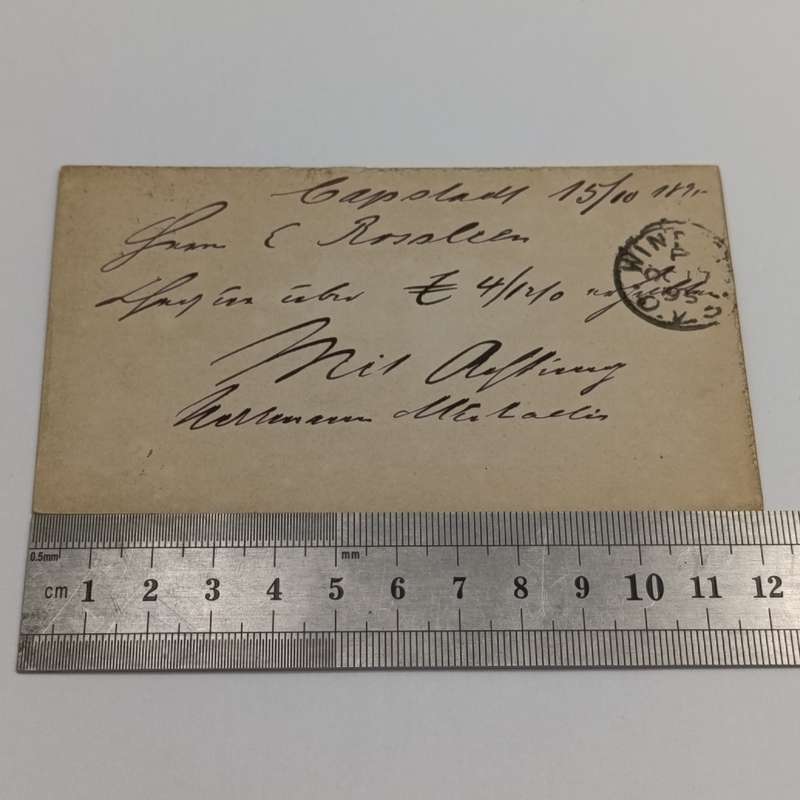 Capstadt 15/10 189
Herrn C Rossleen
über £ 4/12/0 erhalten
Mit Achtung
Herrmann Michaelis
WIN
OC
95
0.5mm mm
cm 1 2 3 4 5 6 7 8 9 10 11 12